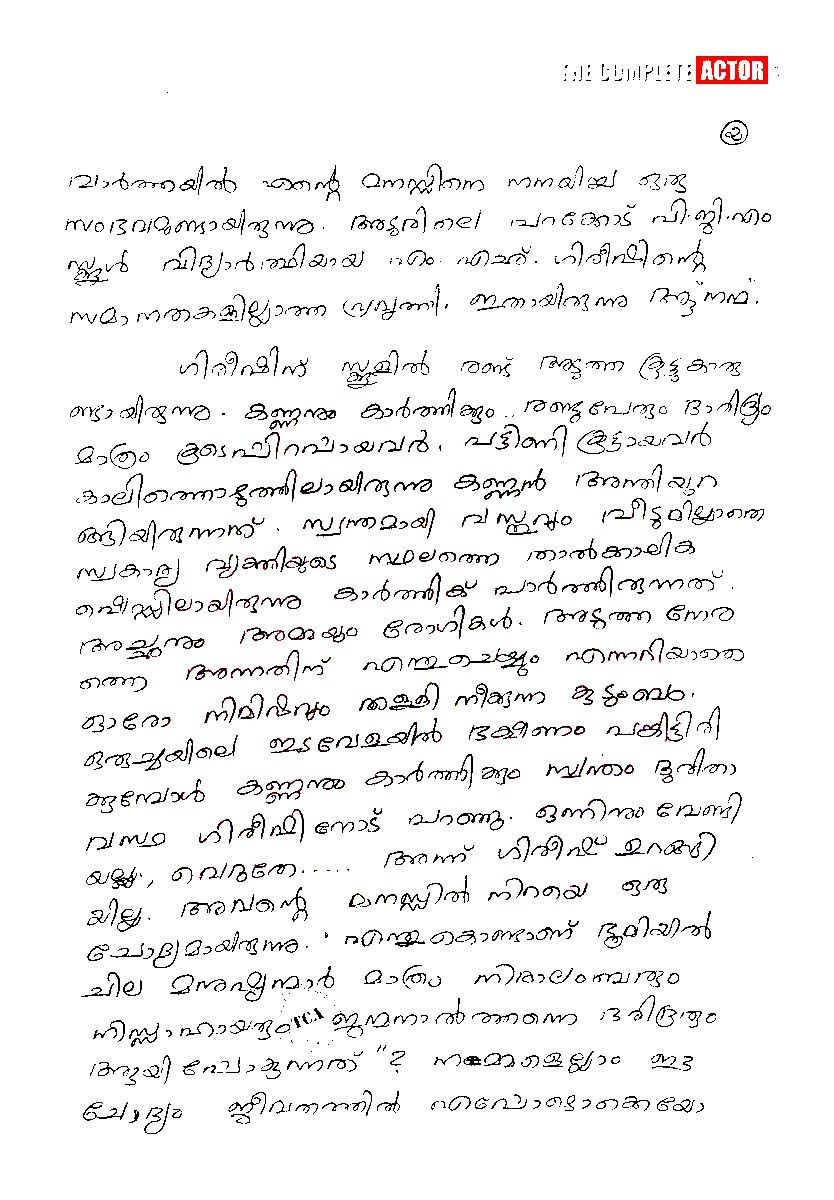 THE COMPLETE ACTOR
൨
വാർത്തയിൽ എന്റെ മനസ്സിനെ നനയിച്ച ഒരു
സംഭവമുണ്ടായിരുന്നു. അടൂരിലെ പറക്കോട് പി.ജി.എം
സ്കൂൾ വിദ്യാർത്ഥിയായ എം. എച്ച്. ഗിരീഷിന്റെ
സമാനതകളില്ലാത്ത പ്രവൃത്തി. ഇതായിരുന്നു അത്.
ഗിരീഷിന് സ്കൂളിൽ രണ്ട് അടുത്ത കൂട്ടുകാരു
ണ്ടായിരുന്നു. കണ്ണനും കാർത്തിക്കും.. രണ്ടുപേരും ദാരിദ്ര്യം
മാത്രം കൂടെപ്പിറപ്പായവർ, പട്ടിണി കൂട്ടായവർ
കാലിത്തൊഴുത്തിലായിരുന്നു കണ്ണൻ അന്തിയുറ
ങ്ങിയിരുന്നത്. സ്വന്തമായി വസ്തുവും വീടുമില്ലാതെ
സ്വകാര്യ വ്യക്തിയുടെ സ്ഥലത്തെ താൽക്കാലിക
ഷെഡ്ഡിലായിരുന്നു കാർത്തിക് പാർത്തിരുന്നത്.
അച്ഛനും അമ്മയും രോഗികൾ. അടുത്ത നേര
ത്തെ അന്നത്തിന് എന്തുചെയ്യും എന്നറിയാതെ
ഓരോ നിമിഷവും തള്ളി നീക്കുന്ന കുടുംബം.
ഉച്ചയിലെ ഇടവേളയിൽ ഭക്ഷണം പങ്കിട്ടിരി
ക്കുമ്പോൾ കണ്ണനും കാർത്തിക്കും സ്വന്തം ദുരിതാ
വസ്ഥ ഗിരീഷിനോട് പറഞ്ഞു. ഒന്നിനും വേണ്ടി
യല്ല, വെറുതേ..... അന്ന് ഗിരീഷ് ഉറങ്ങി
യില്ല. അവന്റെ മനസ്സിൽ നിറയെ ഒരു
ചോദ്യമായിരുന്നു. ' എന്തുകൊണ്ടാണ് ഭൂമിയിൽ
ചില മനുഷ്യന്മാർ മാത്രം നിരാലംബരും
നിസ്സഹായരും ജന്മനാൽത്തന്നെ ദരിദ്രരും
ആയി പോകുന്നത് "? നമ്മളെല്ലാം ഈ
ചോദ്യം ജീവിതത്തിൽ എപ്പോഴൊക്കെയോ